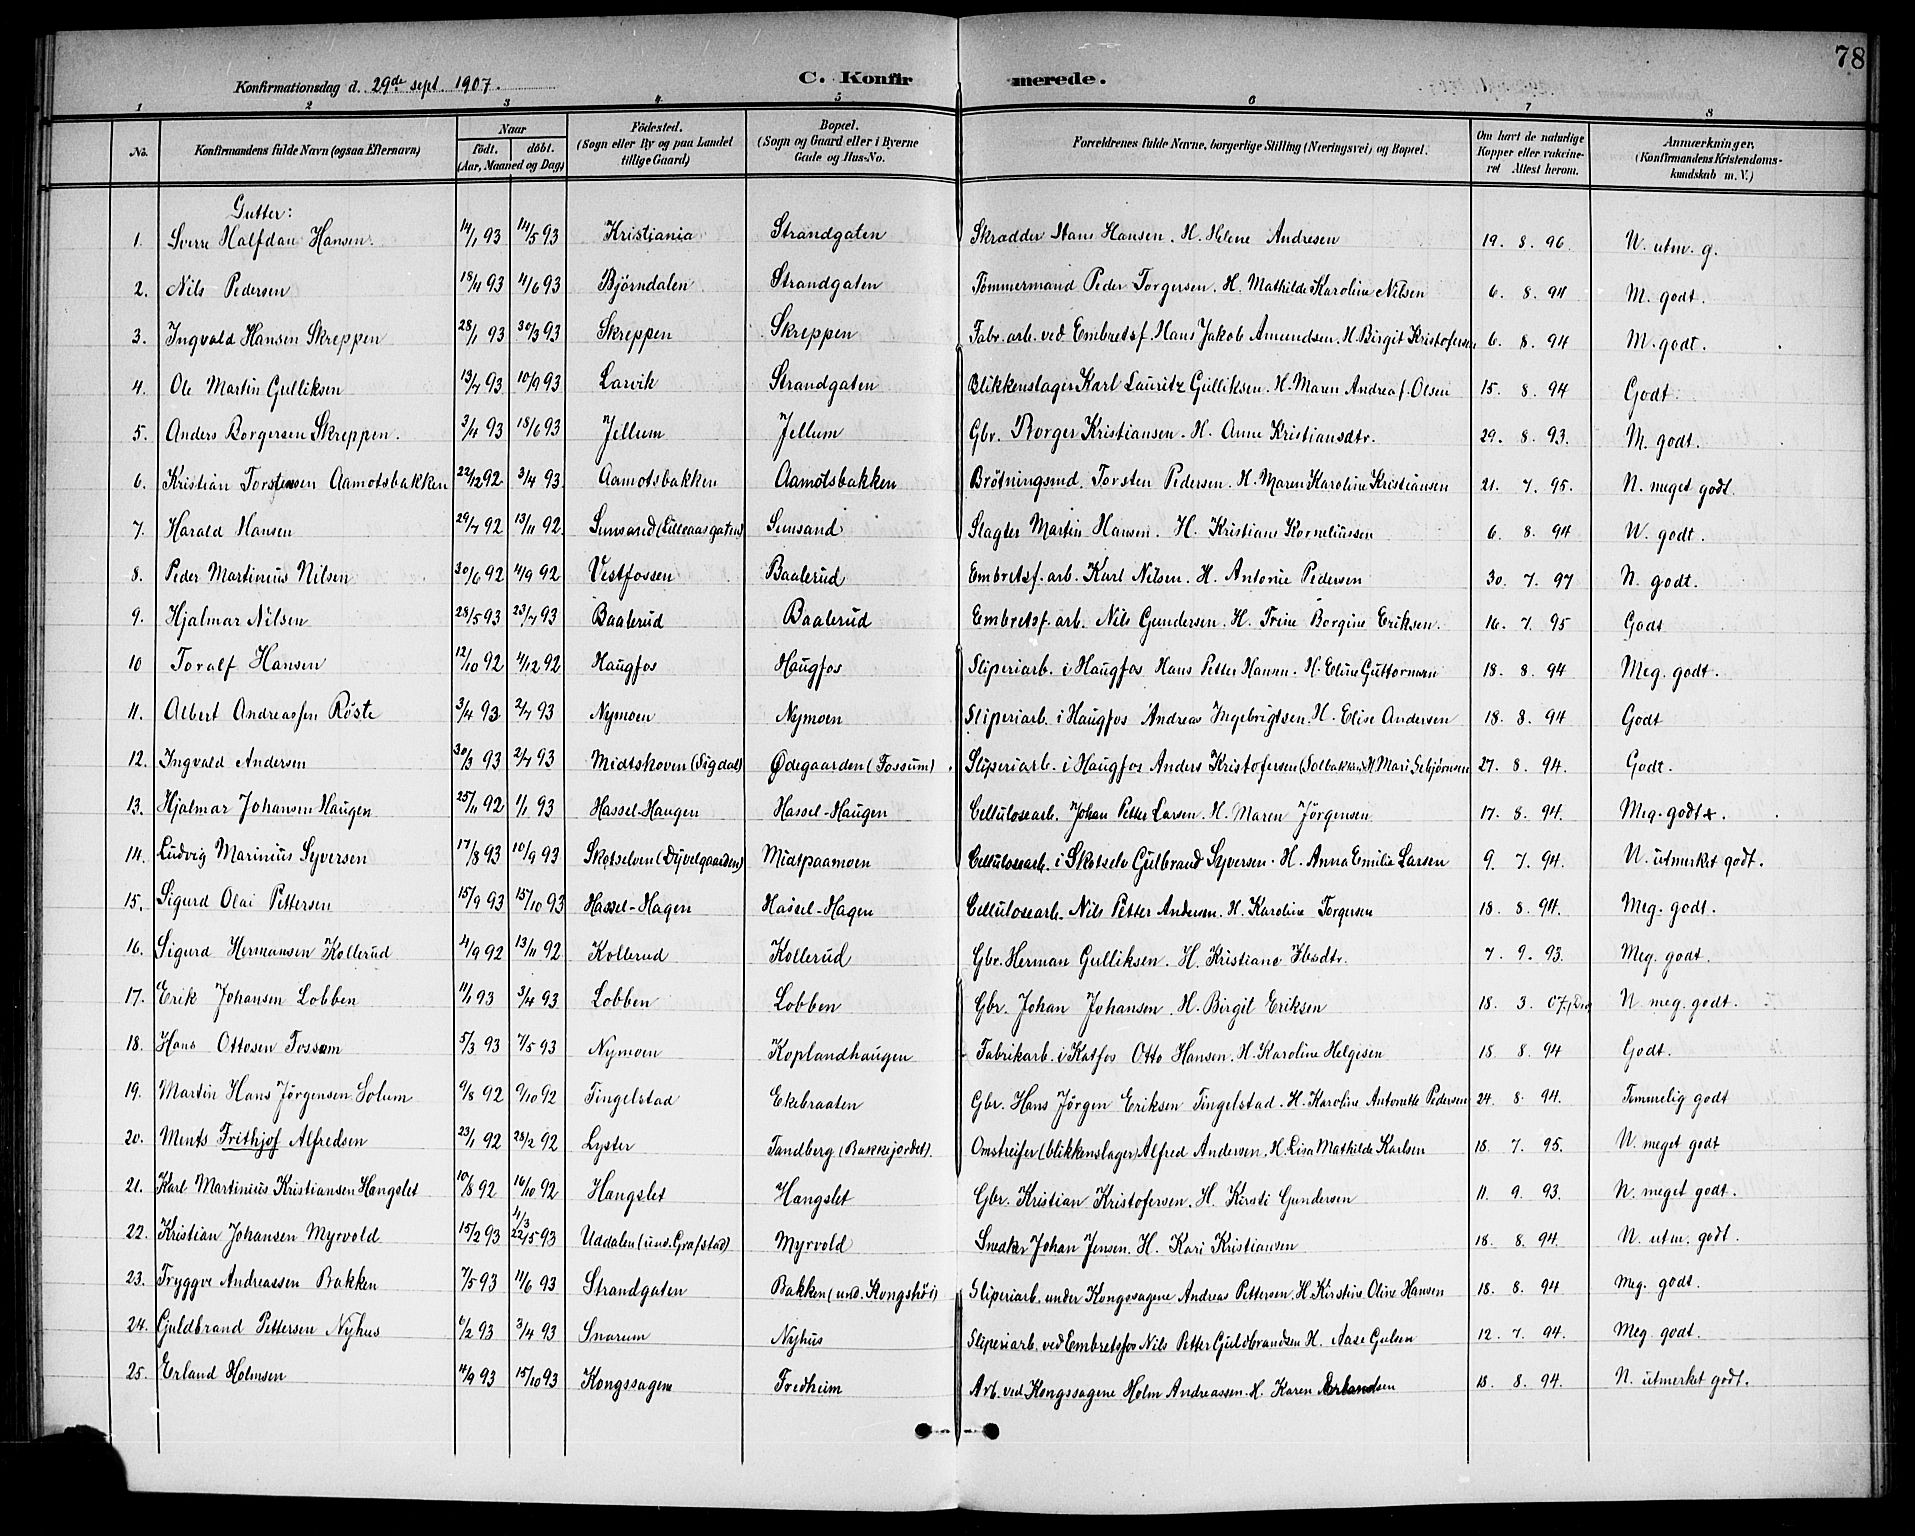 78
Konfirmationsdag d. 29de sept. 1907.
C. Konfirmerede.
1 2 3 4 5 6 7 8
No. | Konfirmandens fulde Navn (ogsaa Efternavn) | Naar födt. döbt. (Aar, Maaned og Dag) | Födested. (Sogn eller By og paa Landet tillige Gaard) | Bopæl. (Sogn og Gaard eller i Byerne Gade og Hus-No. | Forældrenes fulde Navne, borgerlige Stilling (Næringsvei) og Bopæl. | Om havt de naturlige Kopper eller vakcineret Attest herom. | Anmærkninger. (Konfirmandens Kristendomskundskab m. V.)
Gutter:
1. Sverre Halfdan Hansen. 14/1 93 14/5 93 Kristiania Strandgaten Skrædder Hans Hansen. H. Helene Andresen 19. 8. 96. N. utm. g.
2. Nils Pedersen 18/4 93 4/6 93 Björndalen Strandgaten Tömmermand Peder Torgersen. H. Mathilde Karoline Nilsen 6. 8. 94 M. godt.
3. Ingvald Hansen Skreppen 28/1 93 30/3 93 Skreppen Skreppen Fabr. arb. ved Embretsf. Hans Jakob Amundsen. H. Birgit Kristofersen 6. 8. 94 M. godt.
4. Ole Martin Gulliksen 13/7 93 10/9 93 Larvik Strandgaten Blikkenslager Karl Lauritz Gulliksen. H. Maren Andrea f. Olsen 15. 8. 94 Godt.
5. Anders Borgersen Skreppen. 3/4 93 18/6 93 Jellum Jellum Gbr. Borger Kristiansen. H. Anne Kristiansdtr. 29. 8. 93. M. godt.
6. Kristian Torstensen Aamotsbakken 22/12 92 3/4 93. Aamotsbakken Aamotsbakken Brötningsmd. Torsten Pedersen. H. Maren Karoline Kristiansen 21. 7. 95. N. meget godt.
7. Harald Hansen 29/7 92 13/11 92. Semsand (Lilleaasgaten) Semsand Slagter Martin Hansen. H. Kristiane Korneliussen 6. 8. 94 N. godt.
8. Peder Martinius Nilsen 30/6 92 4/9 92 Vestfossen Baalerud Embretsf. arb. Karl Nilsen. H. Antonie Pedersen 30. 7. 97 N. godt.
9. Hjalmar Nilsen 28/5 93 23/7 93 Baalerud Baalerud Embretsf. arb. Nils Gundersen. H. Trine Borgine Eriksen. 16. 7. 95 Godt
10 Toralf Hansen 12/10 92 4/12 92 Haugfos Haugfos Sliperiarb. i Haugfos Hans Petter Hansen. H. Eline Guttormsen 18. 8. 94 Meg. godt.
11. Albert Andreassen Röste 3/4 93 2/7 93 Nymoen Nymoen Sliperiarb. i Haugfos Andreas Ingebrigtsen. H. Elise Andersen 18. 8. 94 Godt
12. Ingvald Andersen 30/3 93 2/7 93 Midtshoven (Sigdal) Ødegaarden (Fossum) Sliperiarb. i Haugfos Anders Kristofersen (Solbakken) H. Mari 27. 8. 94. Godt.
13. Hjalmar Johansen Haugen 25/11 92 1/1 93 Hassel-Haugen Hassel-Haugen Cellulosearb. Johan Petter Larsen. H. Maren Jörgensen 17. 8. 94. Meg. godt.
14. Ludvig Marinius Syversen 17/8 93 10/9 93 Skotselven (Dyvelgaarden) Midtpaamoen Cellulosearb. i Skotselv Gulbrand Syversen. H. Anna Emilie Larsen 9. 7. 94. N. utmerket godt.
15. Sigurd Olai Pettersen 15/9 93 15/10 93 Hassel-Hagen Hassel-Hagen Cellulosearb. Nils Petter Andersen. H. Karoline Torgersen 18. 8. 94. Meg. godt.
16. Sigurd Hermansen Kollerud 4/9 92 13/11 92 Kollerud Kollerud Gbr. Herman Gulliksen. H. Kristiane 7. 9. 93. Meg. godt.
17. Erik Johansen Lobben 11/1 93 3/4 93 Lobben Lobben Gbr. Johan Johansen. H. Birgit Eriksen 18. 3. 07. N. meg. godt.
18. Hans Ottosen Fossum 5/3 93 7/5 93 Nymoen Koplandhaugen Fabrikarb. i Katfos Otto Hansen. H. Karoline Helgesen 18. 8. 94 Godt.
19. Martin Hans Jörgensen Solum 9/8 92 9/10 92 Tingelstad Ekebraaten Gbr. Hans Jörgen Eriksen Tingelstad. H. Karoline Antonette Pedersen 24. 8. 94. Temmelig godt
20. Ments Frithjof Alfredsen 23/1 92 28/2 92 Lyster Tandberg (Bakkejordet). Omstreifer (blikkenslager) Alfred Andersen. H. Lisa Mathilde Karlsen 18. 7. 95. N. meget godt
21. Karl Martinius Kristiansen Hangslet 10/8 92 16/10 92 Hangslet Hangslet Gbr. Kristian Kristofersen. H. Kirsti Gundersen 11. 9. 93. N. meget godt.
22. Kristian Johansen Myrvold 15/2 93 4/3 22/5 93 Uddalen (und. Grafstad) Myrvold Snedker Johan Jensen. H. Kari Kristiansen 18. 8. 94. N. utm. godt.
23. Tryggve Andreassen Bakken 7/5 93 11/6 93 Strandgaten Bakken (und. Kongshöi) Sliperiarb. under Kongssagene Andreas Pettersen. H. Kirstine Oline Hansen 18. 8. 94 Meg. godt.
24. Guldbrand Pettersen Nyhus 6/2 93 3/4 93 Snarum Nyhus Sliperiarb. ved Embretsfos Nils Petter Guldbrandsen H. Aase Gulsen 12. 7. 94. Meg. godt.
25. Erland Holmsen 4/9 93 15/10 93 Kongssagene Fredheim Arb. ved Kongssagene Holm Andreassen. H. Karen Erlandsen 18. 8. 94. N. utmerket godt.